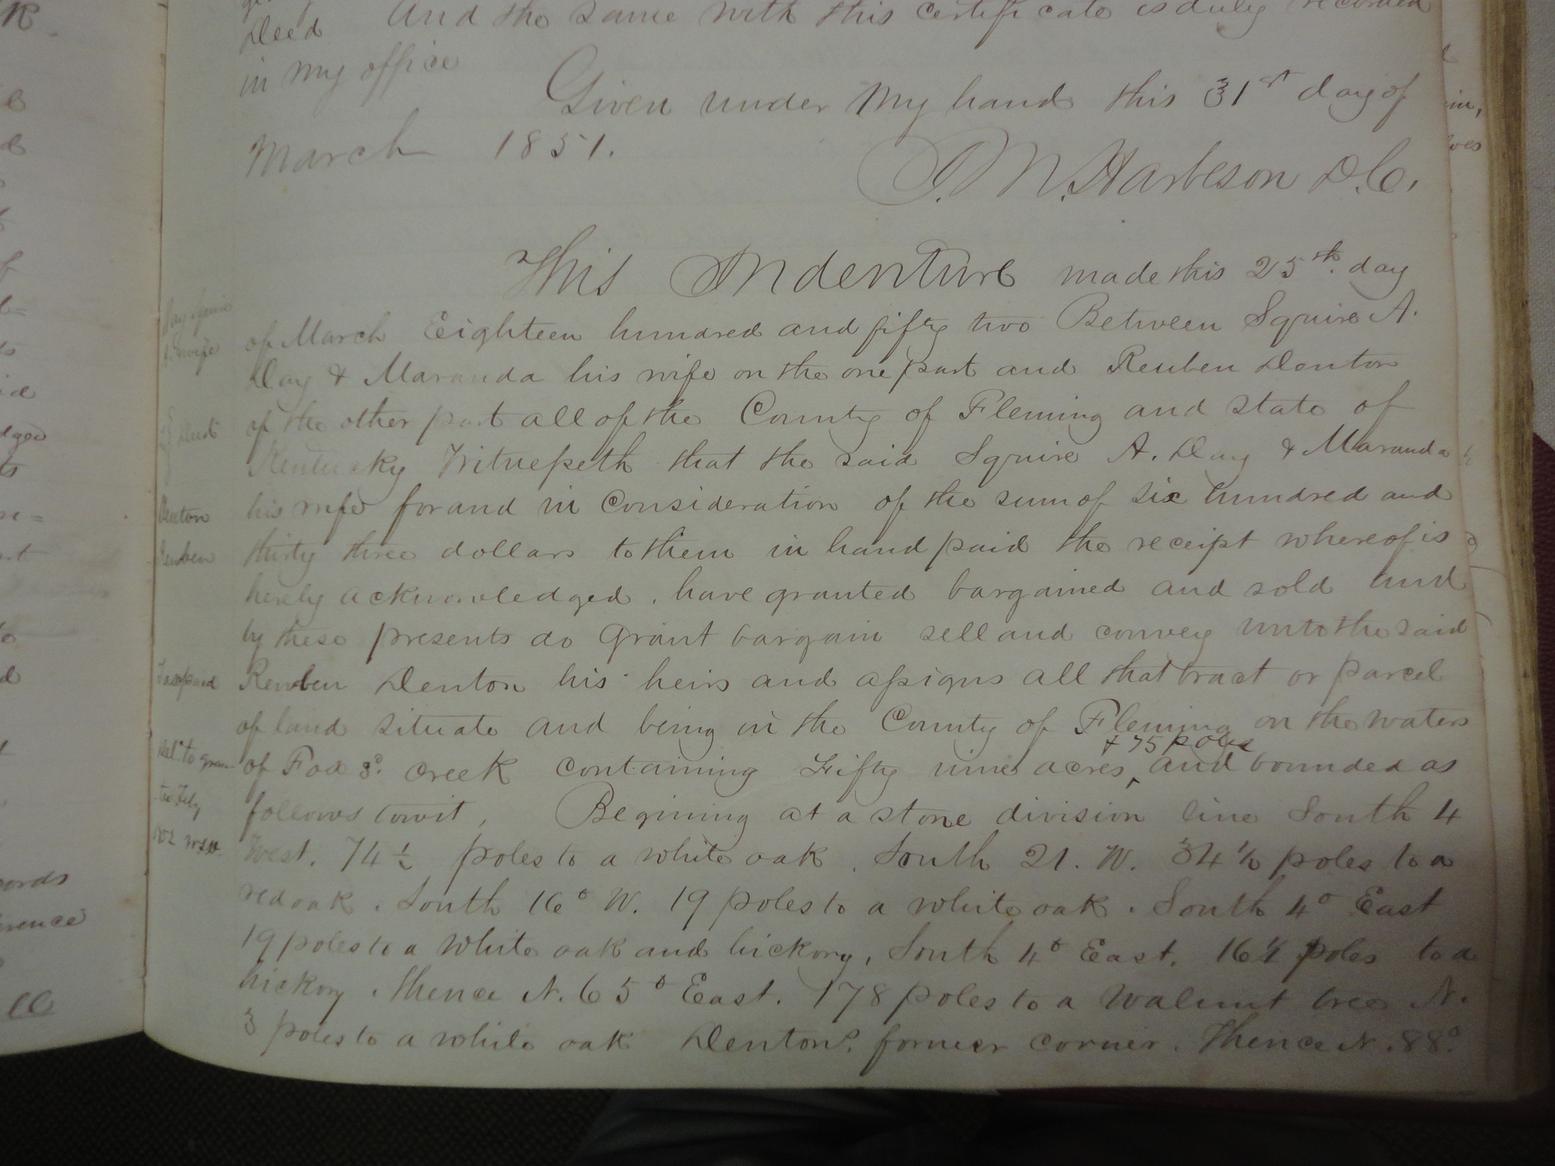 Deed And the same with this certificate is duly recorded
in my office
Given under my hand this 31st day of
March 1851.
M. Harbeson D.C.
This Indenture made this 25th. day
of March Eighteen hundred and fifty two Between Squire A.
Day & Maranda his wife on the one part and Reuben Denton
of the other part all of the County of Fleming and state of
Kentucky Witnesseth that the said Squire A. Day & Maranda
his wife for and in Consideration of the sum of six hundred and
thirty three dollars to them in hand paid the receipt whereof is
hereby acknowledged. have granted bargained and sold and
by these presents do grant bargain sell and convey unto the said
Reuben Denton his heirs and assigns all that tract or parcel
of land situate and being in the County of Fleming on the waters
+ 75 poles
of Fox creek containing Fifty nine acres, and bounded as
follows towit, Begining at a stone division line South 4
West. 74 1/2 poles to a white oak. South 21. W. 34 1/2 poles to a
red oak. South 16° W. 19 poles to a white oak. South 4° East
19 poles to a white oak and hickory, South 4° East. 16 1/2 poles to a
hickory. thence N. 65° East. 178 poles to a walnut tree N.
3 poles to a white oak Dentons former corner. Thence N. 88°
& wife
Deed
Denton
Reuben
Tax paid